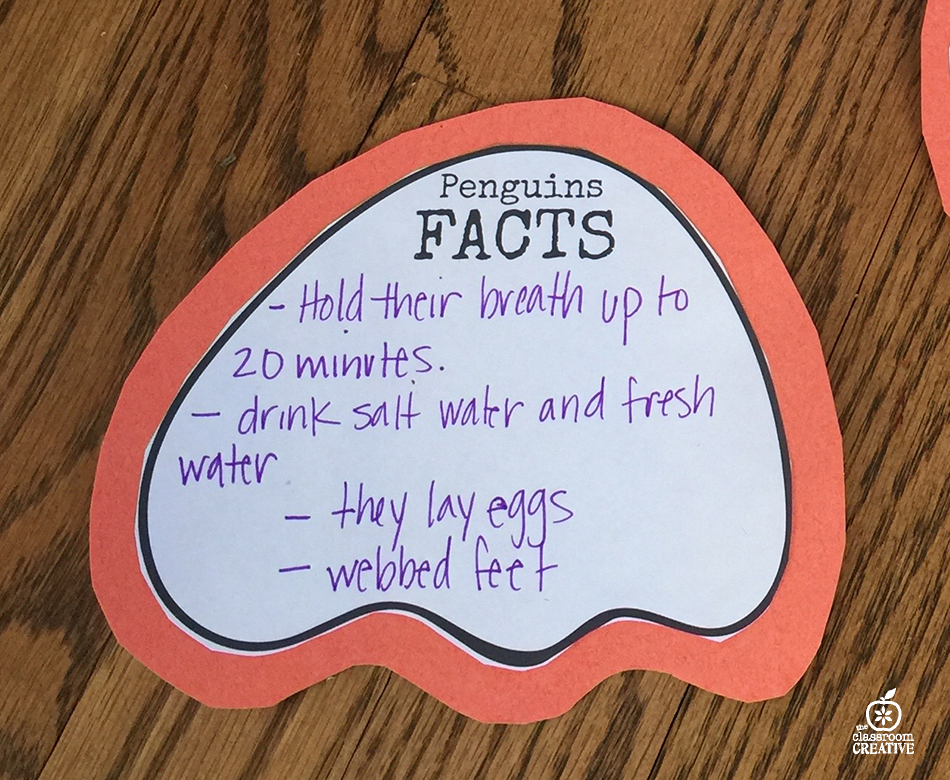 Penguins
FACTS
- Hold their breath up to
20 minutes.
- drink salt water and fresh
water
- they lay eggs
- webbed feet
the
classroom
CREATIVE